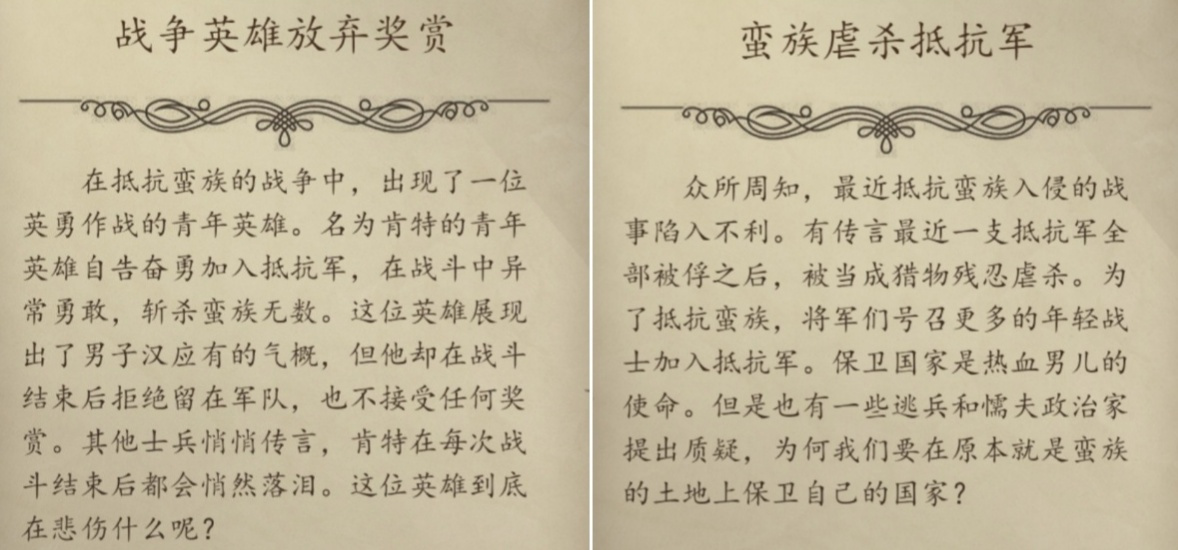 战争英雄放弃奖赏
在抵抗蛮族的战争中，出现了一位
英勇作战的青年英雄。名为肯特的青年
英雄自告奋勇加入抵抗军，在战斗中异
常勇敢，斩杀蛮族无数。这位英雄展现
出了男子汉应有的气概，但他却在战斗
结束后拒绝留在军队，也不接受任何奖
赏。其他士兵悄悄传言，肯特在每次战
斗结束后都会悄然落泪。这位英雄到底
在悲伤什么呢？
蛮族虐杀抵抗军
众所周知，最近抵抗蛮族入侵的战
事陷入不利。有传言最近一支抵抗军全
部被俘之后，被当成猎物残忍虐杀。为
了抵抗蛮族，将军们号召更多的年轻战
士加入抵抗军。保卫国家是热血男儿的
使命。但是也有一些逃兵和懦夫政治家
提出质疑，为何我们要在原本就是蛮族
的土地上保卫自己的国家？